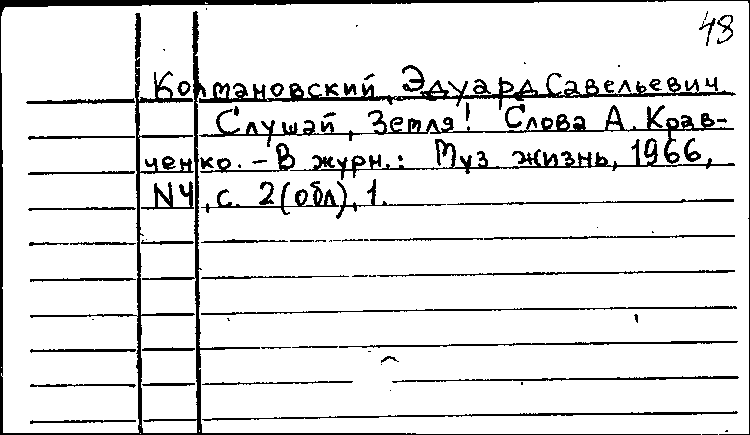 48
Колмановский, Эдуард Савельевич.
Слушай, Земля! Слова А. Крав-
ченко. – В журн.: Муз жизнь, 1966,
N4, с. 2(обл), 1.